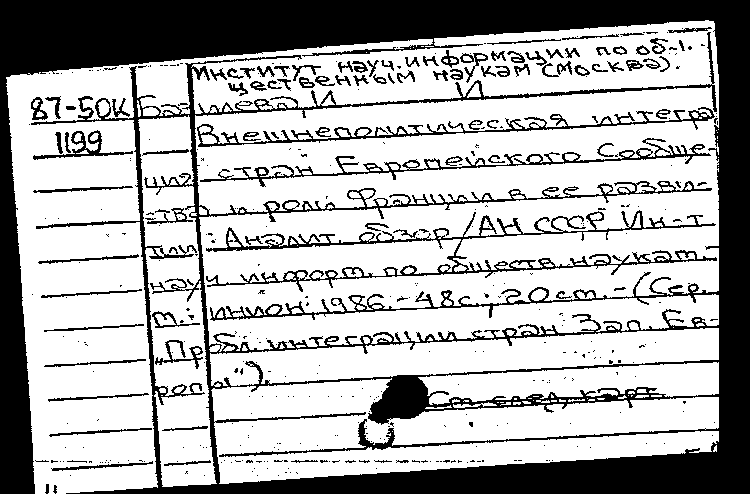 Институт науч. информации по об-
щественным наукам (Москва).
87-50К Базилева, И И
1199 Внешнеполитическая интегра
ция стран Европейского Сообще-
ства и роль Франции в ее разви-
тии : Аналит. обзор / АН СССР, Ин-т
науч информ. по обществ. наукам. -
М.: ИНИОН, 1986. - 48 с.; 20 см. - (Сер.
„Пробл. интеграции стран Зап. Ев-
ропы").
См. след. карт.